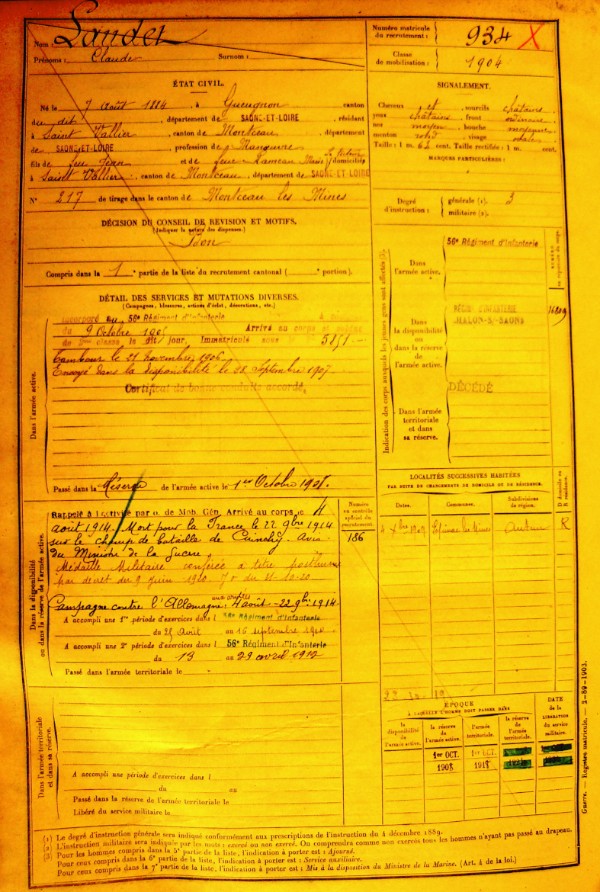 Nom : Landet
Prénoms : Claude
Surnom :
Numéro matricule du recrutement : 934 X
Classe de mobilisation : 1904
ÉTAT CIVIL.
Né le 7 Août 1884, à Gueugnon canton
du dit, département de SAONE-ET-LOIRE résidant
à Saint Vallier, canton de Montceau, département
de SAONE-ET-LOIRE, profession de Manoeuvre
fils de feu Jean et de feue Rameau Marie domiciliés
à Saint Vallier, canton de Montceau, département de SAONE-ET-LOIRE
N° 217 de tirage dans le canton de Montceau les Mines
SIGNALEMENT.
Cheveux et sourcils châtains
yeux châtains front ordinaire
nez moyen bouche moyenne
menton rond visage ovale
Taille : 1 m. 62 cent. Taille rectifiée : 1 m. cent.
MARQUES PARTICULIÈRES :
Degré d'instruction :
générale (1). 3
militaire (2).
DÉCISION DU CONSEIL DE REVISION ET MOTIFS.
(Indiquer la nature des dispenses.)
Bon
Compris dans la 1e partie de la liste du recrutement cantonal ( e portion).
DÉTAIL DES SERVICES ET MUTATIONS DIVERSES.
(Campagnes, blessures, actions d'éclat, décorations, etc.)
Incorporé au 56e Régiment d'Infanterie à compter
du 9 Octobre 1905 Arrivé au corps et soldat
de 2ème classe le dit jour. Immatriculé sous 5851
Tambour le 21 novembre 1906.
Envoyé dans la disponibilité le 28 Septembre 1907.
Certificat de bonne conduite accordé.
Passé dans la Réserve de l'armée active le 1er Octobre 1908.
Dans l'armée active.
Indication des corps auxquels les jeunes gens sont affectés
Dans l'armée active.
56e Régiment d'Infanterie
Dans la disponibilité ou dans la réserve de l'armée active.
RÉGt D'INFANTERIE
CHALON-S-SAONE
DÉCÉDÉ
Dans l'armée territoriale et dans sa réserve.
LOCALITÉS SUCCESSIVES HABITÉES
PAR SUITE DE CHANGEMENTS DE DOMICILE OU DE RÉSIDENCE.
Dates. Communes. Subdivisions de région. D domicile ou R résidence.
Epinac les Mines Autun R
Dans la disponibilité ou dans la réserve de l'armée active.
Numéro au contrôle spécial du recrutement.
186
Rappelé à l'activité par o. de Mob. Gén. Arrivé au corps le 4
août 1914. Mort pour la France le 22 9bre 1914
sur le champ de bataille de Cuinchy. Avis
du Ministre de la Guerre.
Médaille Militaire conférée à titre posthume
par décret du 9 juin 1920. J.O. du 21-10-20
Campagne contre l'Allemagne: aux armées 4 août - 22 9bre 1914.
A accompli une 1re période d'exercices dans l 56e Régiment d'Infanterie
du 25 Août au 16 septembre 1910
A accompli une 2e période d'exercices dans l 56e Régiment d'Infanterie
du 13 au 29 avril 1912
Passé dans l'armée territoriale le
Dans l'armée territoriale et dans sa réserve.
A accompli une période d'exercices dans l
du au
Passé dans la réserve de l'armée territoriale le
Libéré du service militaire le
ÉPOQUE
À LAQUELLE L'HOMME DOIT PASSER DANS
la disponibilité de l'armée active. la réserve de l'armée active. l'armée territoriale. la réserve de l'armée territoriale.
DATE de la LIBÉRATION du service militaire.
1er OCT. 1er OCT.
1908 1918
Guerre. — Registre matricule. — 2-89-1903.
(1) Le degré d'instruction générale sera indiqué conformément aux prescriptions de l'instruction du 4 décembre 1889.
(2) L'instruction militaire sera indiquée par les mots : exercé ou non exercé. On comprendra comme non exercés tous les hommes n'ayant pas passé au drapeau.
(3) Pour les hommes compris dans la 5e partie de la liste, l'indication à porter est : Ajourné.
Pour ceux compris dans la 6e partie de la liste, l'indication à porter est : Service auxiliaire.
Pour ceux compris dans la 7e partie de la liste, l'indication à porter est : Mis à la disposition du Ministre de la Marine. (Art. 4 de la loi.)